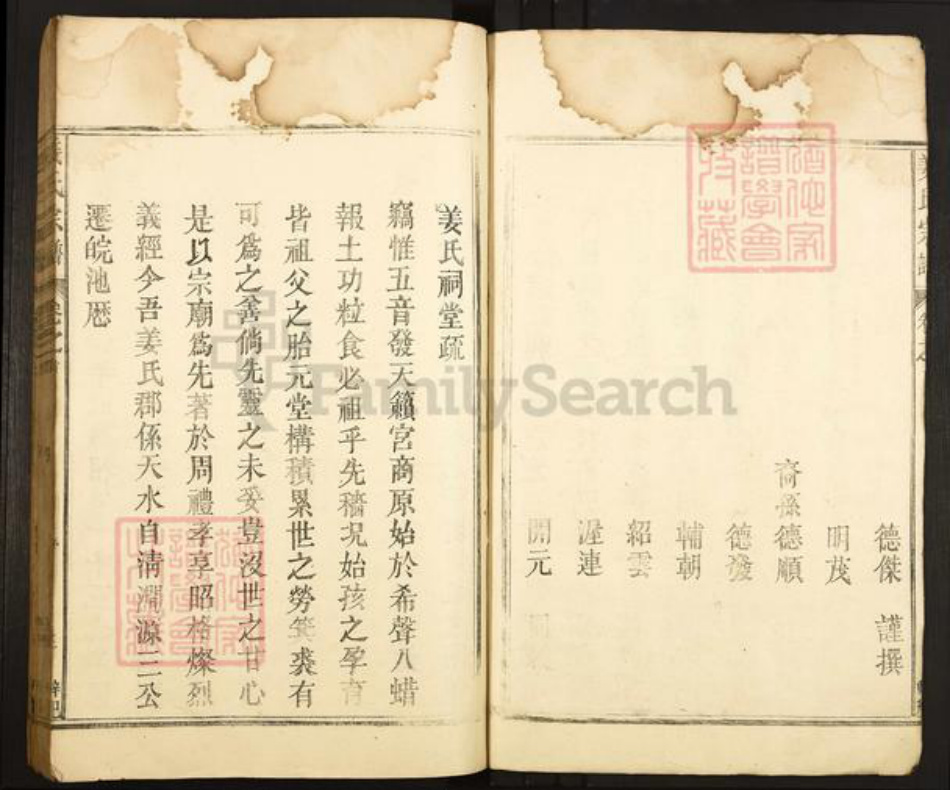 德傑 謹撰
明茂
裔孫德順
德發
輔朝
紹雲
渥連
開元
姜氏祠堂疏
竊惟五音發天籟宮商原始於希聲八蜡
報土功粒食必祖乎先穡况始孩之孕育
皆祖父之胎元堂構積累世之勞箕裘有
可爲之善倘先靈之未妥豈沒世之甘心
是以宗廟爲先著於周禮孝享昭格燦烈
義經今吾姜氏郡係天水自清澗源三公
遷皖池厯
姜氏宗譜
卷之
FamilySearch